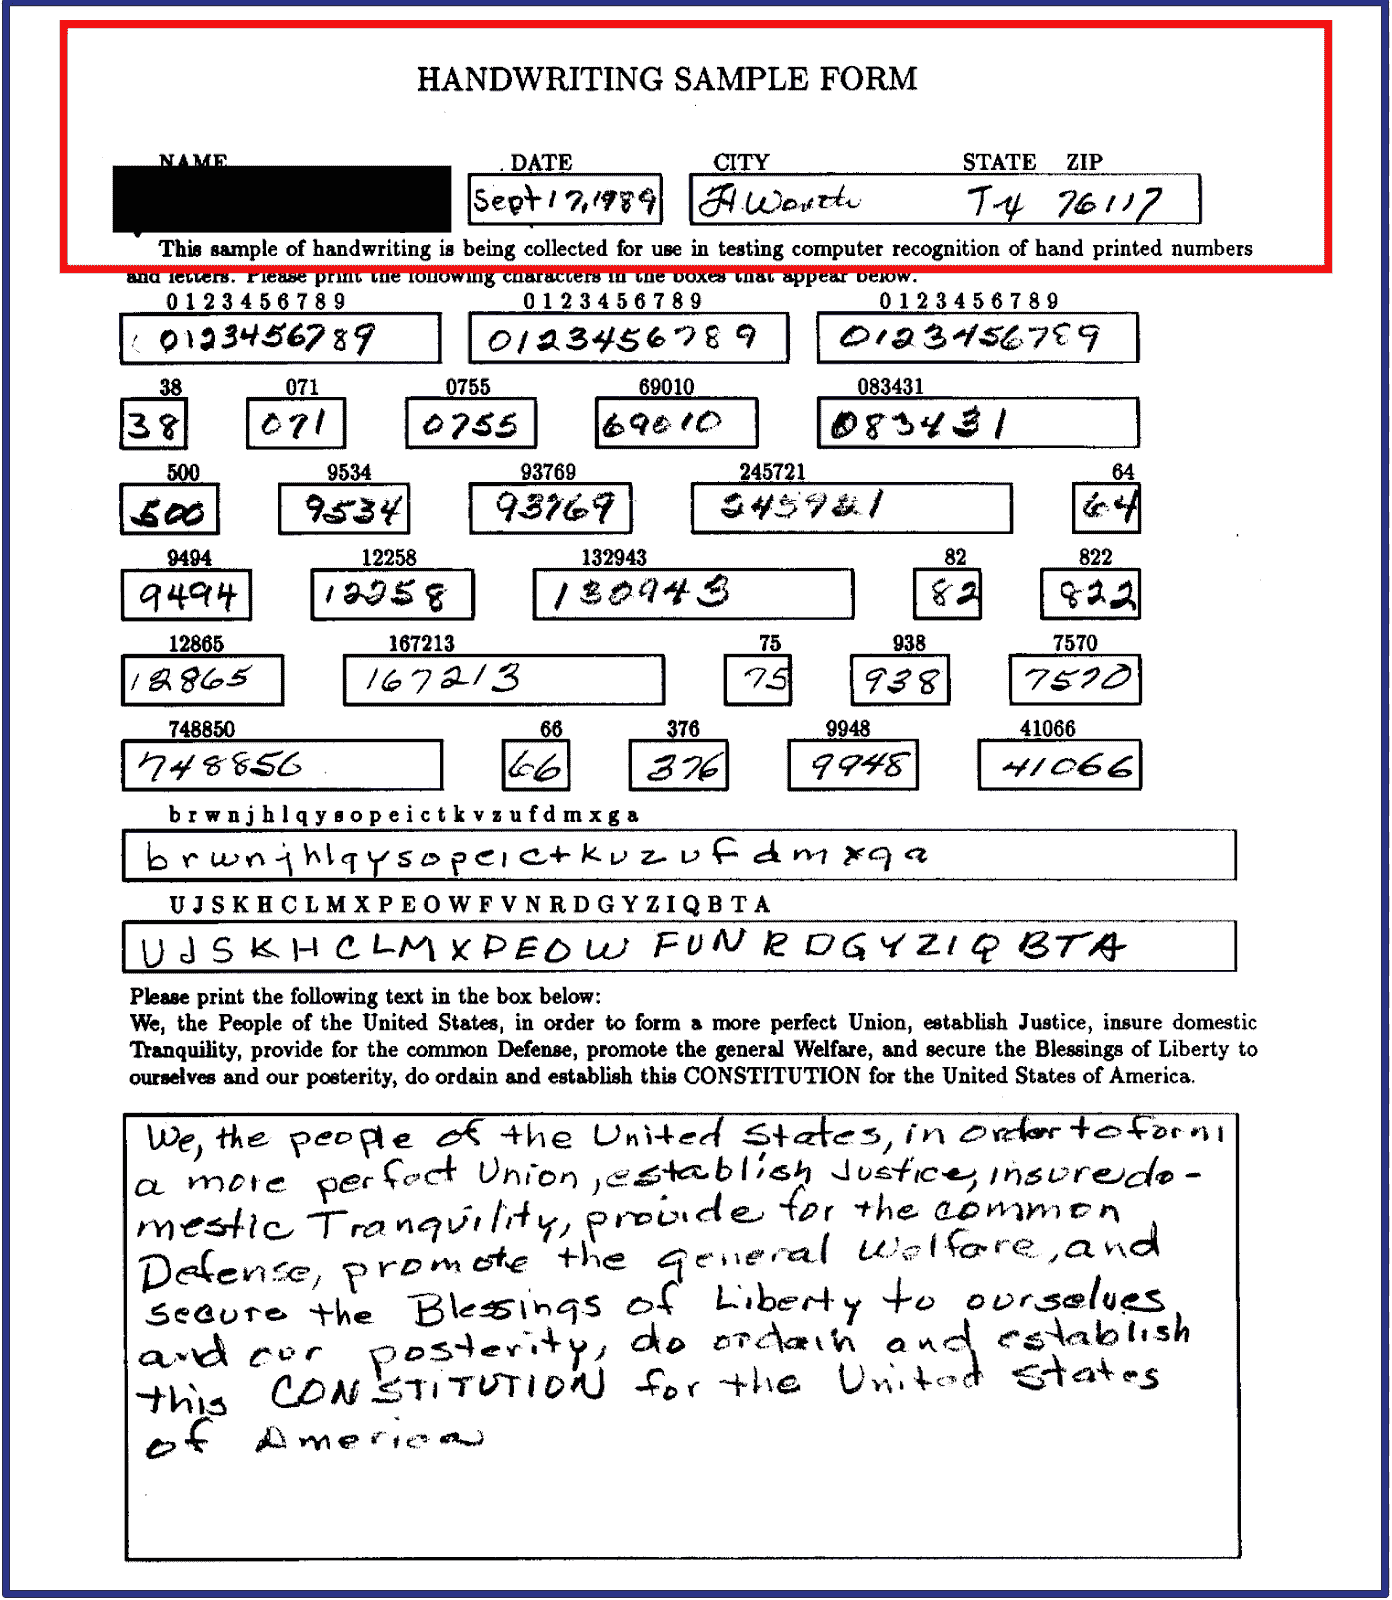 HANDWRITING SAMPLE FORM
NAME DATE CITY STATE ZIP
Sept 17, 1989 Ft. Worth TX 76117
This sample of handwriting is being collected for use in testing computer recognition of hand printed numbers
and letters. Please print the following characters in the boxes that appear below.
0 1 2 3 4 5 6 7 8 9 0 1 2 3 4 5 6 7 8 9 0 1 2 3 4 5 6 7 8 9
0123456789 0123456789 0123456789
38 071 0755 69010 083431
38 071 0755 69010 083431
500 9534 93769 245721 64
500 9534 93769 245721 64
9494 12258 132943 82 822
9494 12258 130943 82 822
12865 167213 75 938 7570
12865 167213 75 938 7570
748850 66 376 9948 41066
748856 66 376 9948 41066
b r w n j h l q y s o p e i c t k v z u f d m x g a
b r w n j h l q y s o p e i c t k v z u f d m x g a
U J S K H C L M X P E O W F V N R D G Y Z I Q B T A
U J S K H C L M X P E O W F V N R D G Y Z I Q B T A
Please print the following text in the box below:
We, the People of the United States, in order to form a more perfect Union, establish Justice, insure domestic
Tranquility, provide for the common Defense, promote the general Welfare, and secure the Blessings of Liberty to
ourselves and our posterity, do ordain and establish this CONSTITUTION for the United States of America.
We, the people of the United States, in order to form
a more perfect Union, establish Justice, insure do-
mestic Tranquility, provide for the common
Defense, promote the general Welfare, and
secure the Blessings of Liberty to ourselves
and our posterity, do ordain and establish
this CONSTITUTION for the United States
of America